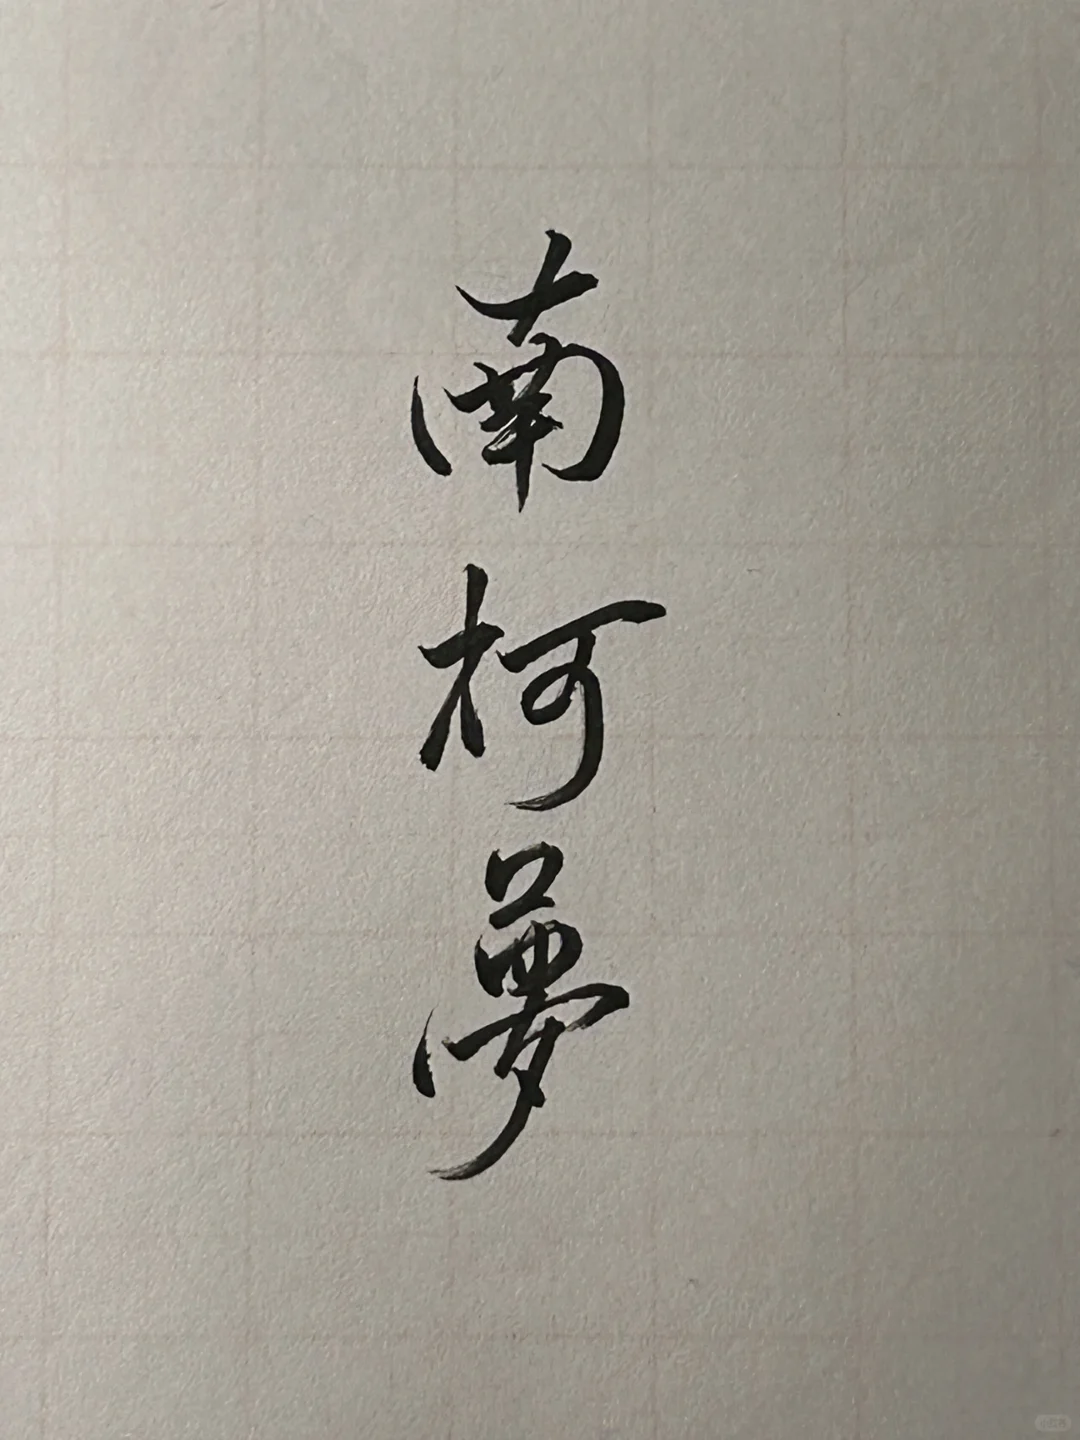 南柯夢